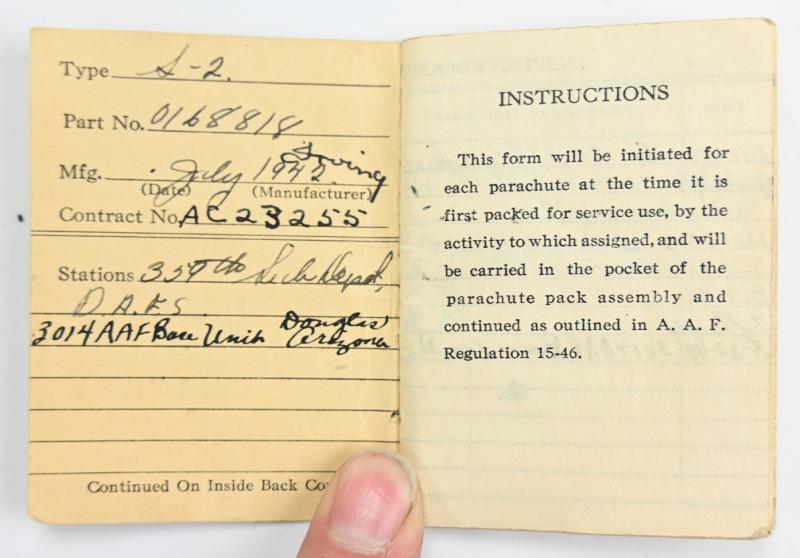 Type S-2.
Part No. 0168818
Irving
Mfg. July 1942
(Date) (Manufacturer)
Contract No. AC23255
Stations 359th Sub Depot,
D.A.F.S.
3014 AAF Base Unit Douglas Arizona
Continued On Inside Back
INSTRUCTIONS
This form will be initiated for
each parachute at the time it is
first packed for service use, by the
activity to which assigned, and will
be carried in the pocket of the
parachute pack assembly and
continued as outlined in A. A. F.
Regulation 15-46.